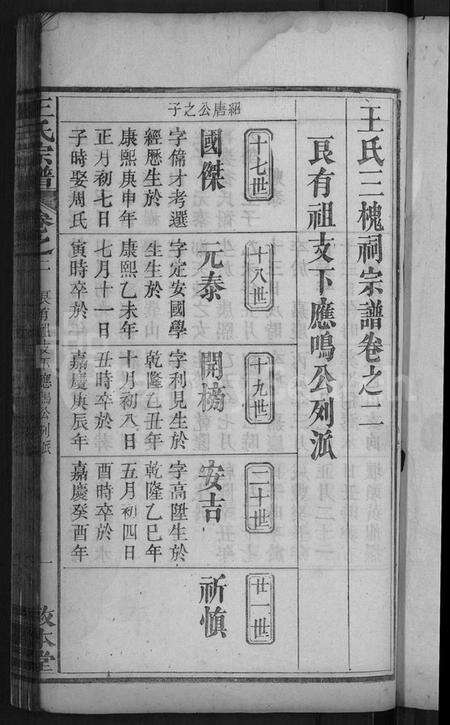 王氏三槐祠宗譜卷之二
艮有祖支下應鳴公列派
十七世
十八世
十九世
二十世
廿一世
紹唐公之子
國傑
字倫才考選
經歷生於
康熙庚申年
正月初七日
子時娶周氏
元泰
字定安國學
生生於
康熙乙未年
七月十一日
寅時卒於
開橋
字利見生於
乾隆乙丑年
十月初八日
丑時卒於
嘉慶庚辰年
安吉
字高陞生於
乾隆乙巳年
五月初四日
酉時卒於
嘉慶癸酉年
祈慎
王氏宗譜
卷之二
艮有祖支下應鳴公列派
一
敦本堂